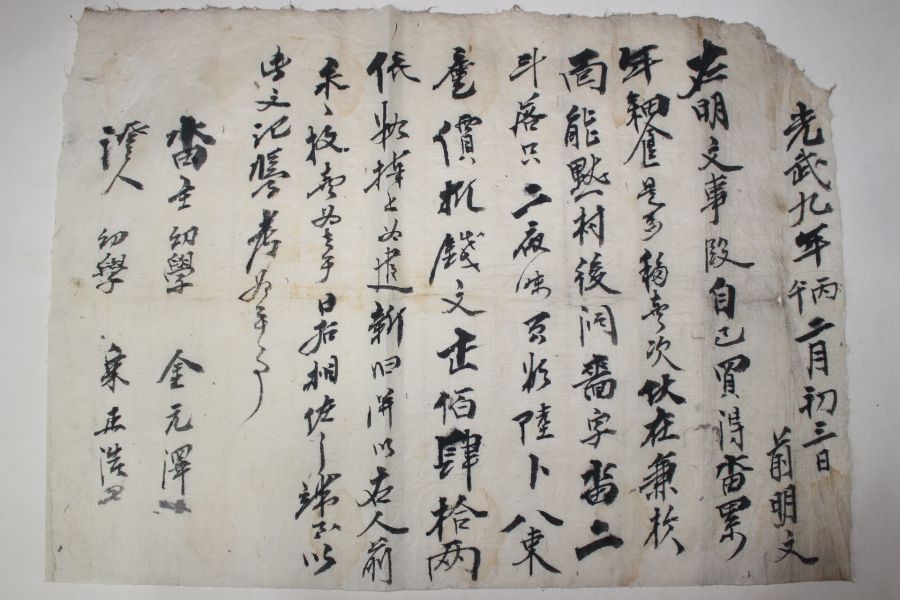 光武九年丙午二月初三日 前明文
右明文事段自己買得畓累
年耕食是如 移賣次伏在兼於
面能默村後洞 字畓二
斗落只二夜味 負數陸卜八束
廤價折錢文 佰肆拾兩
依數捧上為遣新旧 幷以右人前
永永放賣為去乎日后相佐之端 以
此文記 考為乎事
畓主 幼學 金元澤
證人 幼學 浩